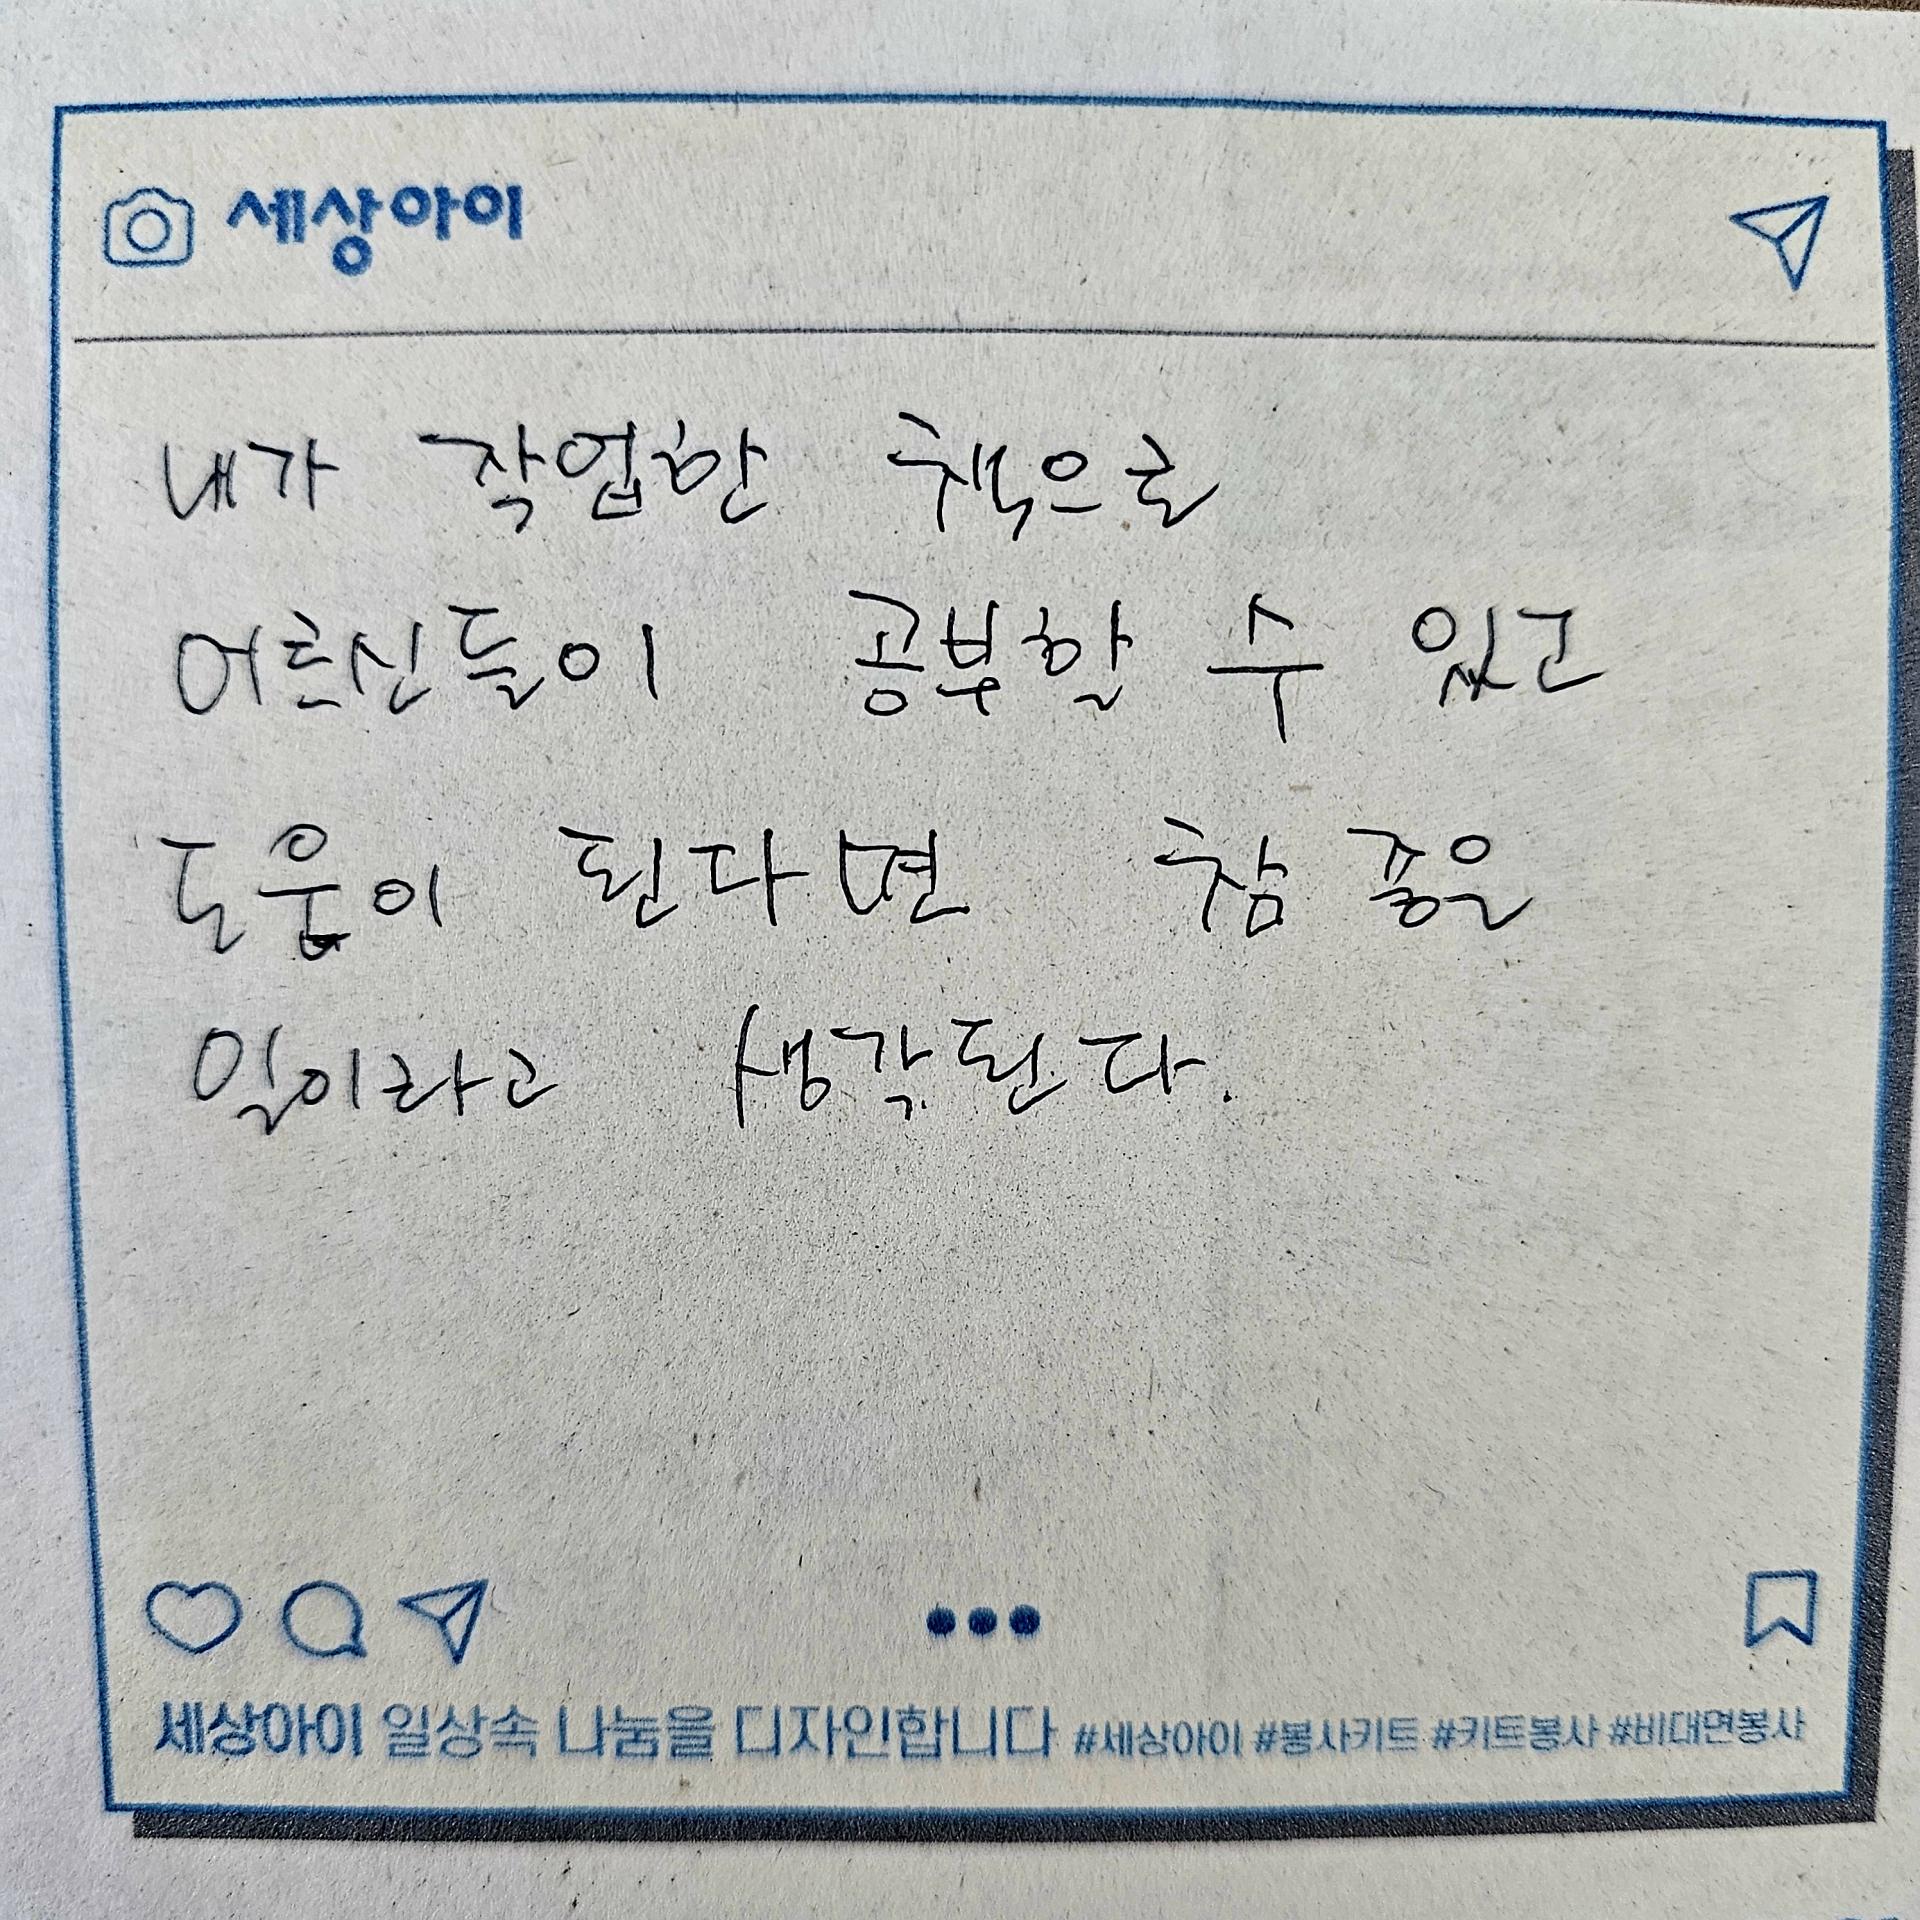 세상아이
내가 작업한 책으로
어르신들이 공부할 수 있고
도움이 된다면 참 좋은
일이라고 생각된다.
세상아이 일상속 나눔을 디자인합니다 #세상아이 #봉사키트 #키트봉사 #비대면봉사